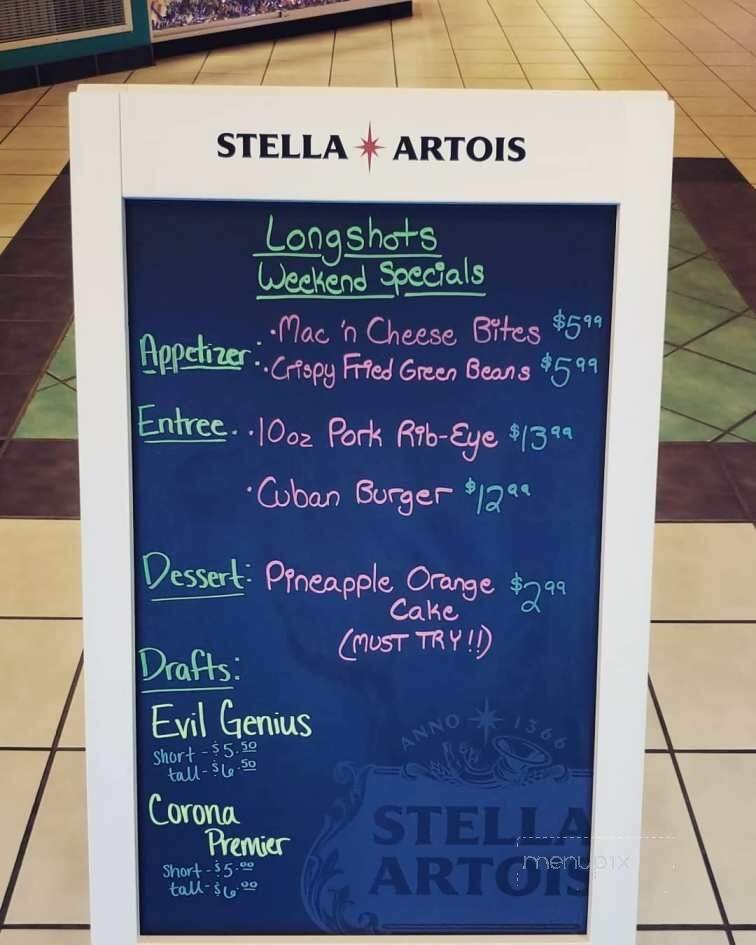 STELLA ARTOIS
Longshots
Weekend Specials
Appetizer: ·Mac 'n Cheese Bites $5.99
·Crispy Fried Green Beans $5.99
Entree. ·10oz Pork Rib-Eye $13.99
·Cuban Burger $12.99
Dessert: Pineapple Orange $2.99
Cake
(MUST TRY!!)
Drafts:
Evil Genius
short - $5.50
tall - $6.50
Corona
Premier
short - $5.00
tall - $6.00
ANNO 1366
STELLA
ARTOIS
menupix